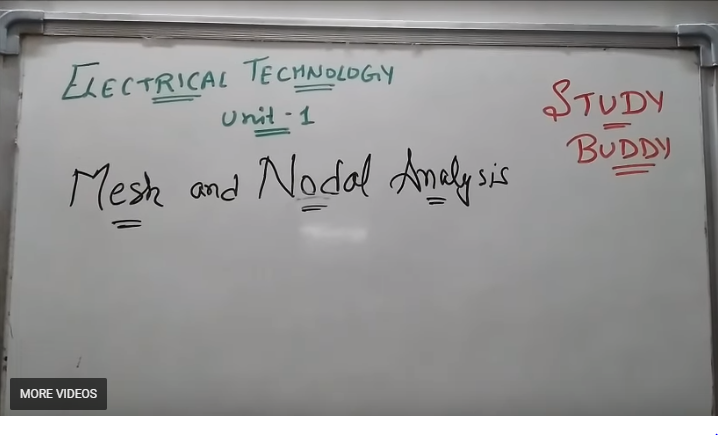 ELECTRICAL TECHNOLOGY
Unit - 1
STUDY
BUDDY
Mesh and Nodal Analysis
MORE VIDEOS